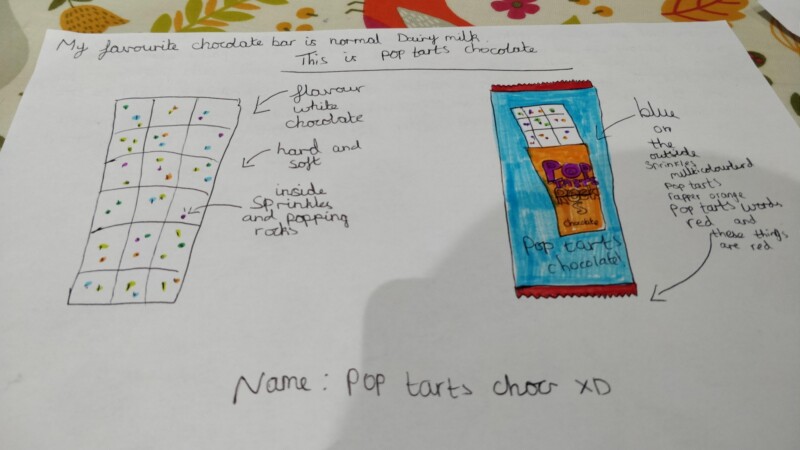 My favourite chocolate bar is normal Dairy milk.
This is pop tarts chocolate
flavour
white
chocolate
hard and
soft
inside
Sprinkles
and popping
rocks
POP
chocolate
Pop tarts
chocolate!
blue
on
the
outside
Sprinkles
Pop tarts
rapper orange
Pop tarts words
red and
these things
are red
Name: Pop tarts choco XD